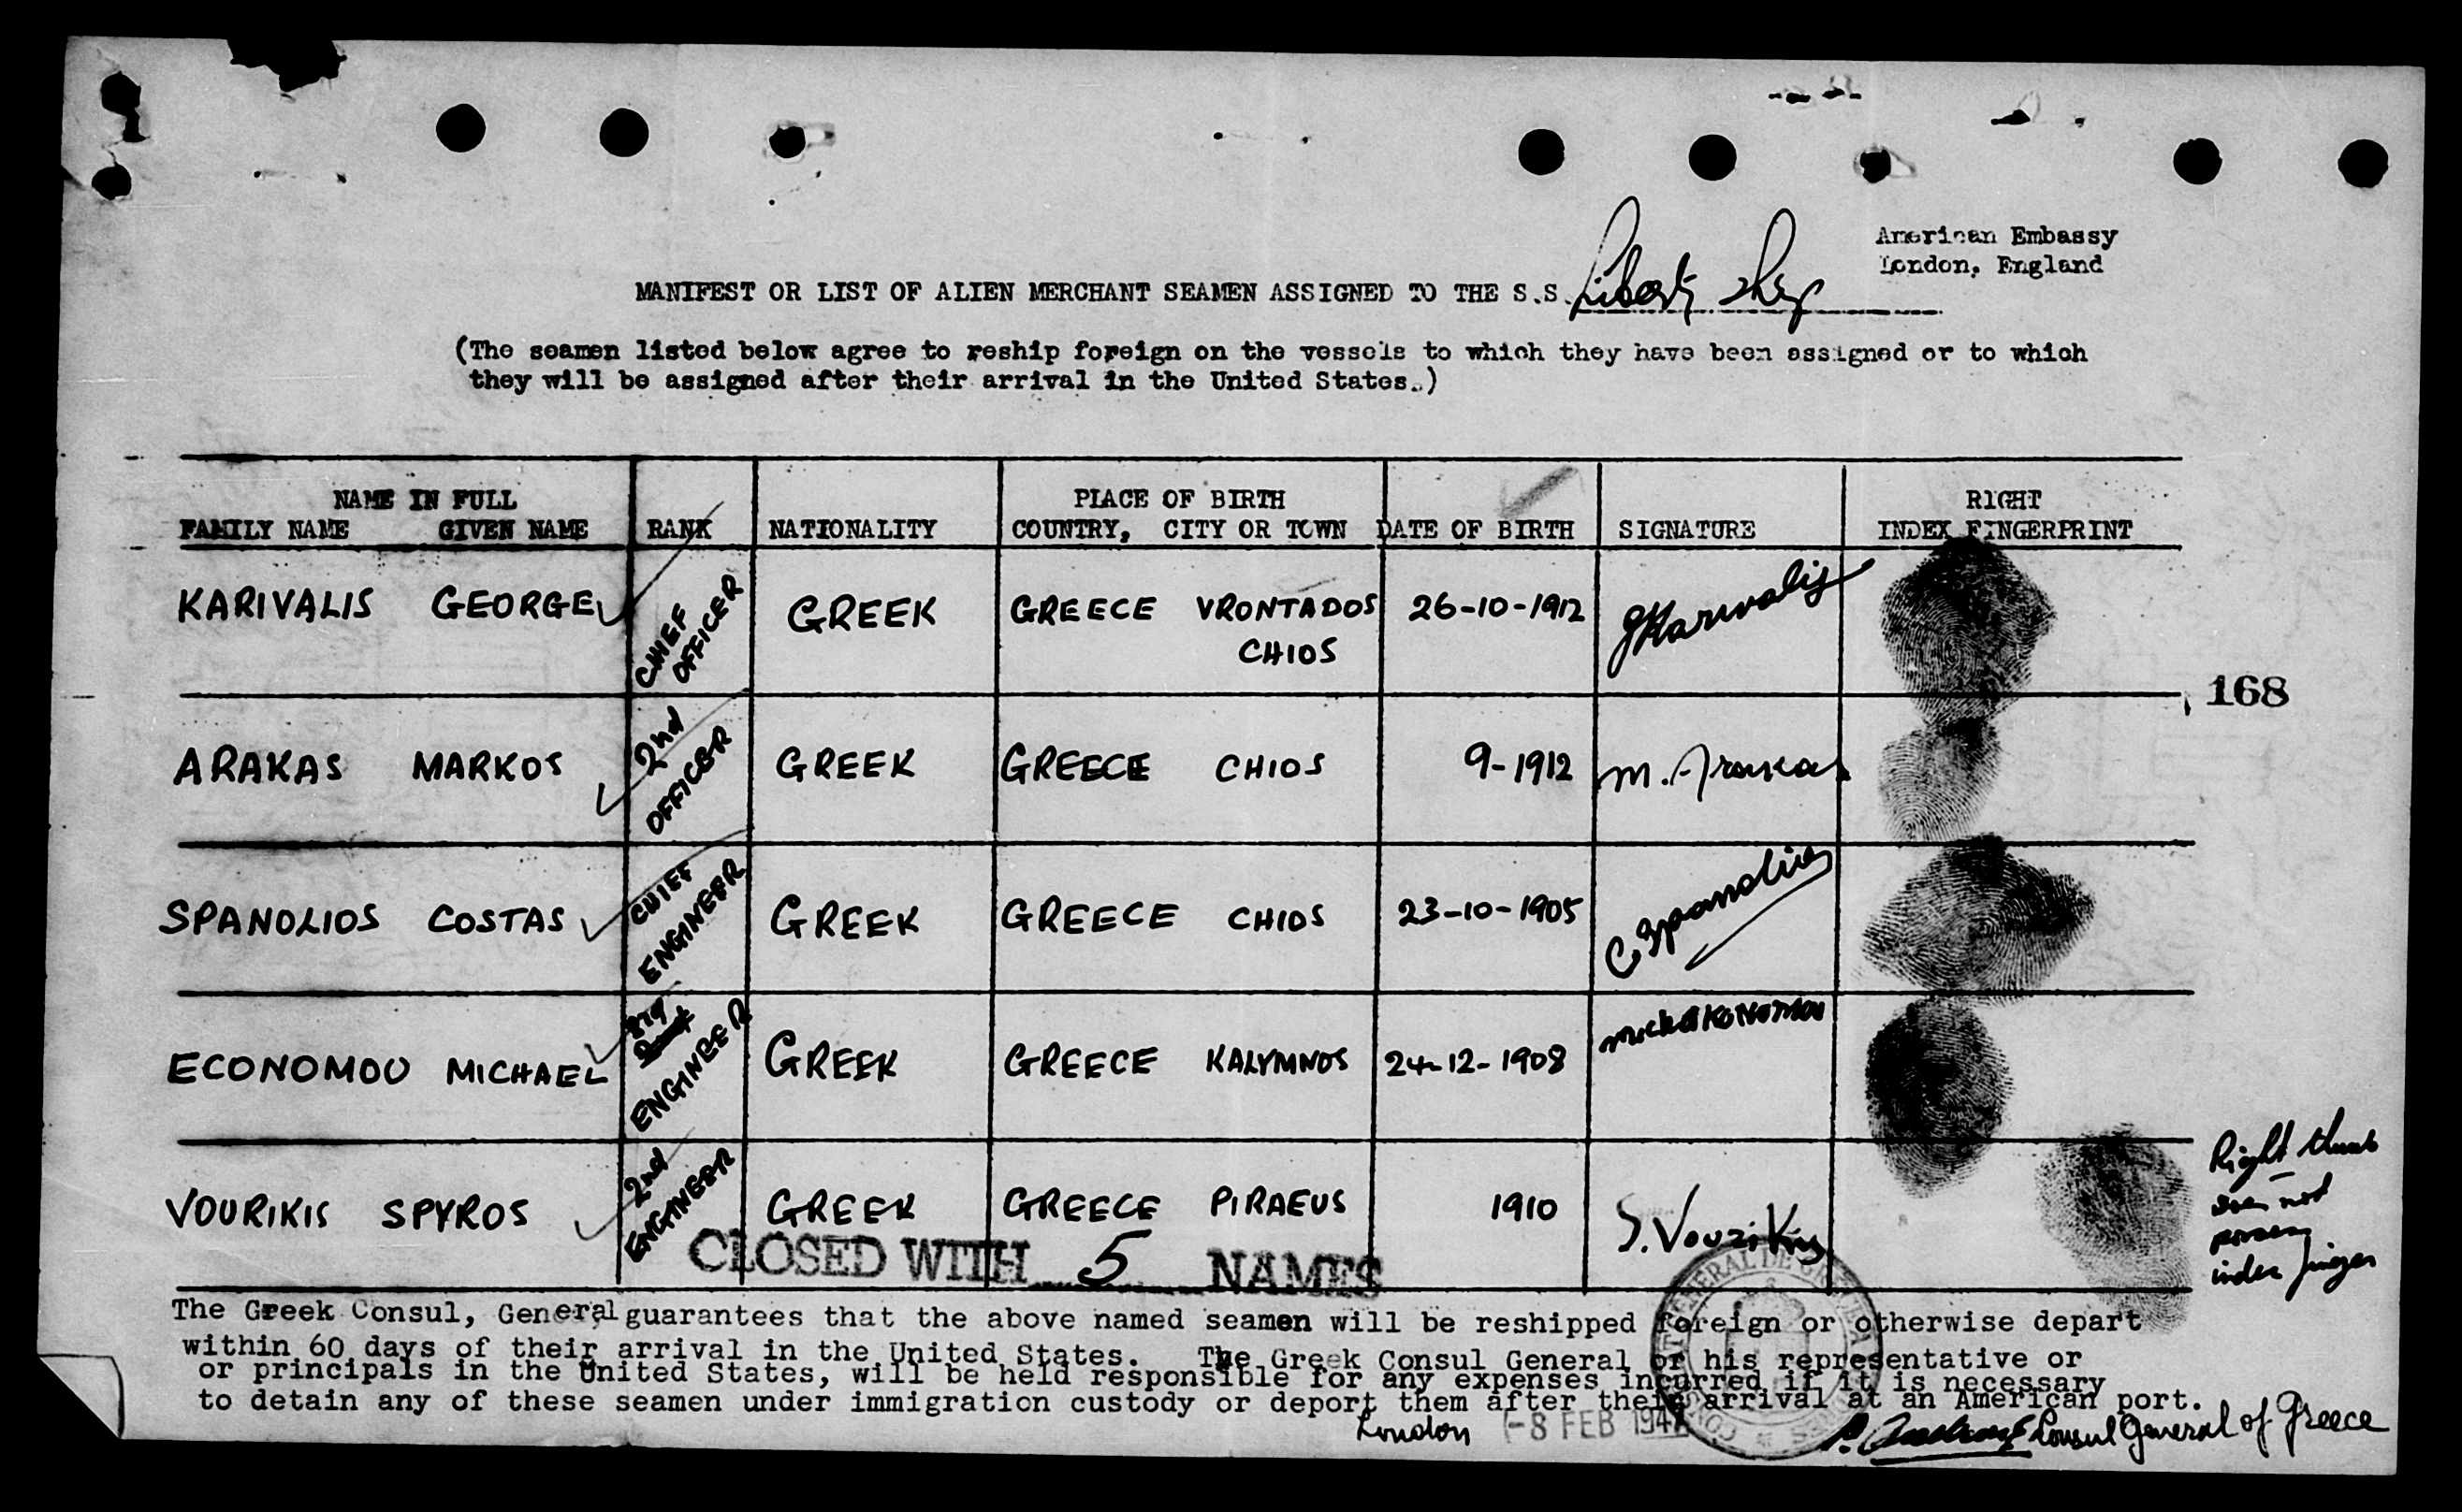 American Embassy
London, England
MANIFEST OR LIST OF ALIEN MERCHANT SEAMEN ASSIGNED TO THE S.S. Liberty Ship
(The seamen listed below agree to reship foreign on the vessels to which they have been assigned or to which
they will be assigned after their arrival in the United States.)
NAME IN FULL PLACE OF BIRTH RIGHT
FAMILY NAME GIVEN NAME RANK NATIONALITY COUNTRY, CITY OR TOWN DATE OF BIRTH SIGNATURE INDEX FINGERPRINT
KARIVALIS GEORGE CHIEF OFFICER GREEK GREECE VRONTADOS CHIOS 26-10-1912 GKarivalis
168
ARAKAS MARKOS 2nd OFFICER GREEK GREECE CHIOS 9-1912 M. Arakas
SPANOLIOS COSTAS CHIEF ENGINEER GREEK GREECE CHIOS 23-10-1905 C Spanolios
ECONOMOU MICHAEL ENGINEER GREEK GREECE KALYMNOS 24-12-1908
VOURIKIS SPYROS 2nd ENGINEER GREEK GREECE PIRAEUS 1910 S. Vourikis
Right thumb
does not
possess
index finger
CLOSED WITH 5 NAMES
The Greek Consul, General guarantees that the above named seamen will be reshipped foreign or otherwise depart
within 60 days of their arrival in the United States. The Greek Consul General or his representative or
or principals in the United States, will be held responsible for any expenses incurred if it is necessary
to detain any of these seamen under immigration custody or deport them after their arrival at an American port.
London -8 FEB 194 Consul General of Greece